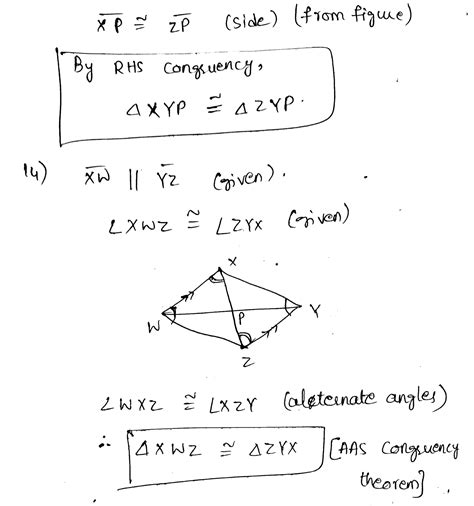 XP ≅ ZP (side) (from figure)
By RHS Congruency,
△XYP ≅ △ZYP.
14) XW || YZ (given).
∠XWZ ≅ ∠ZYX (given)
X
W P Y
Z
∠WXZ ≅ ∠XZY (alternate angles)
∴ △XWZ ≅ △ZYX [AAS Congruency
theorem]